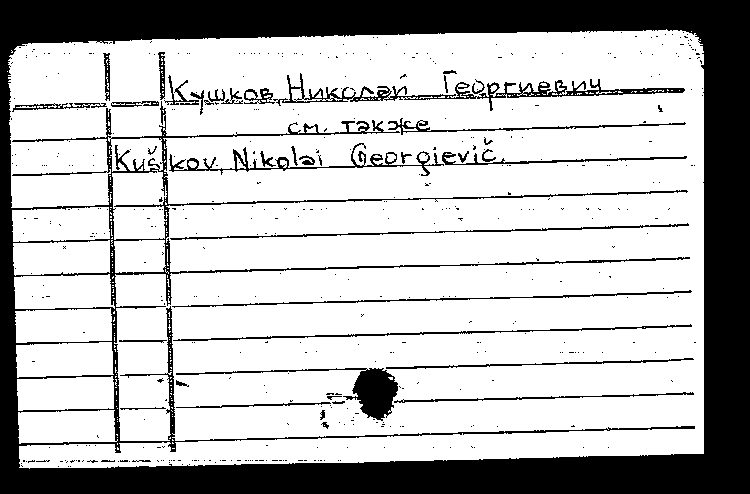 Кушков, Николай Георгиевич
см. также
Kuškov, Nikolai Georgievič.